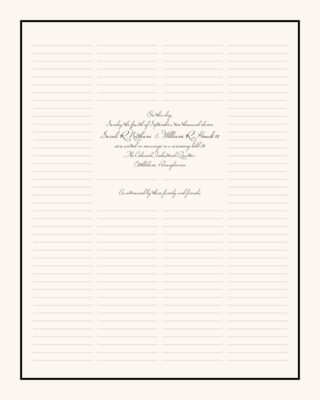 On this day,
Sunday the fourth of September, two thousand eleven
Sarah R. & William R.
were united in marriage in a ceremony held at
The Colonial Industrial Quarter
Bethlehem, Pennsylvania
As witnessed by these family and friends